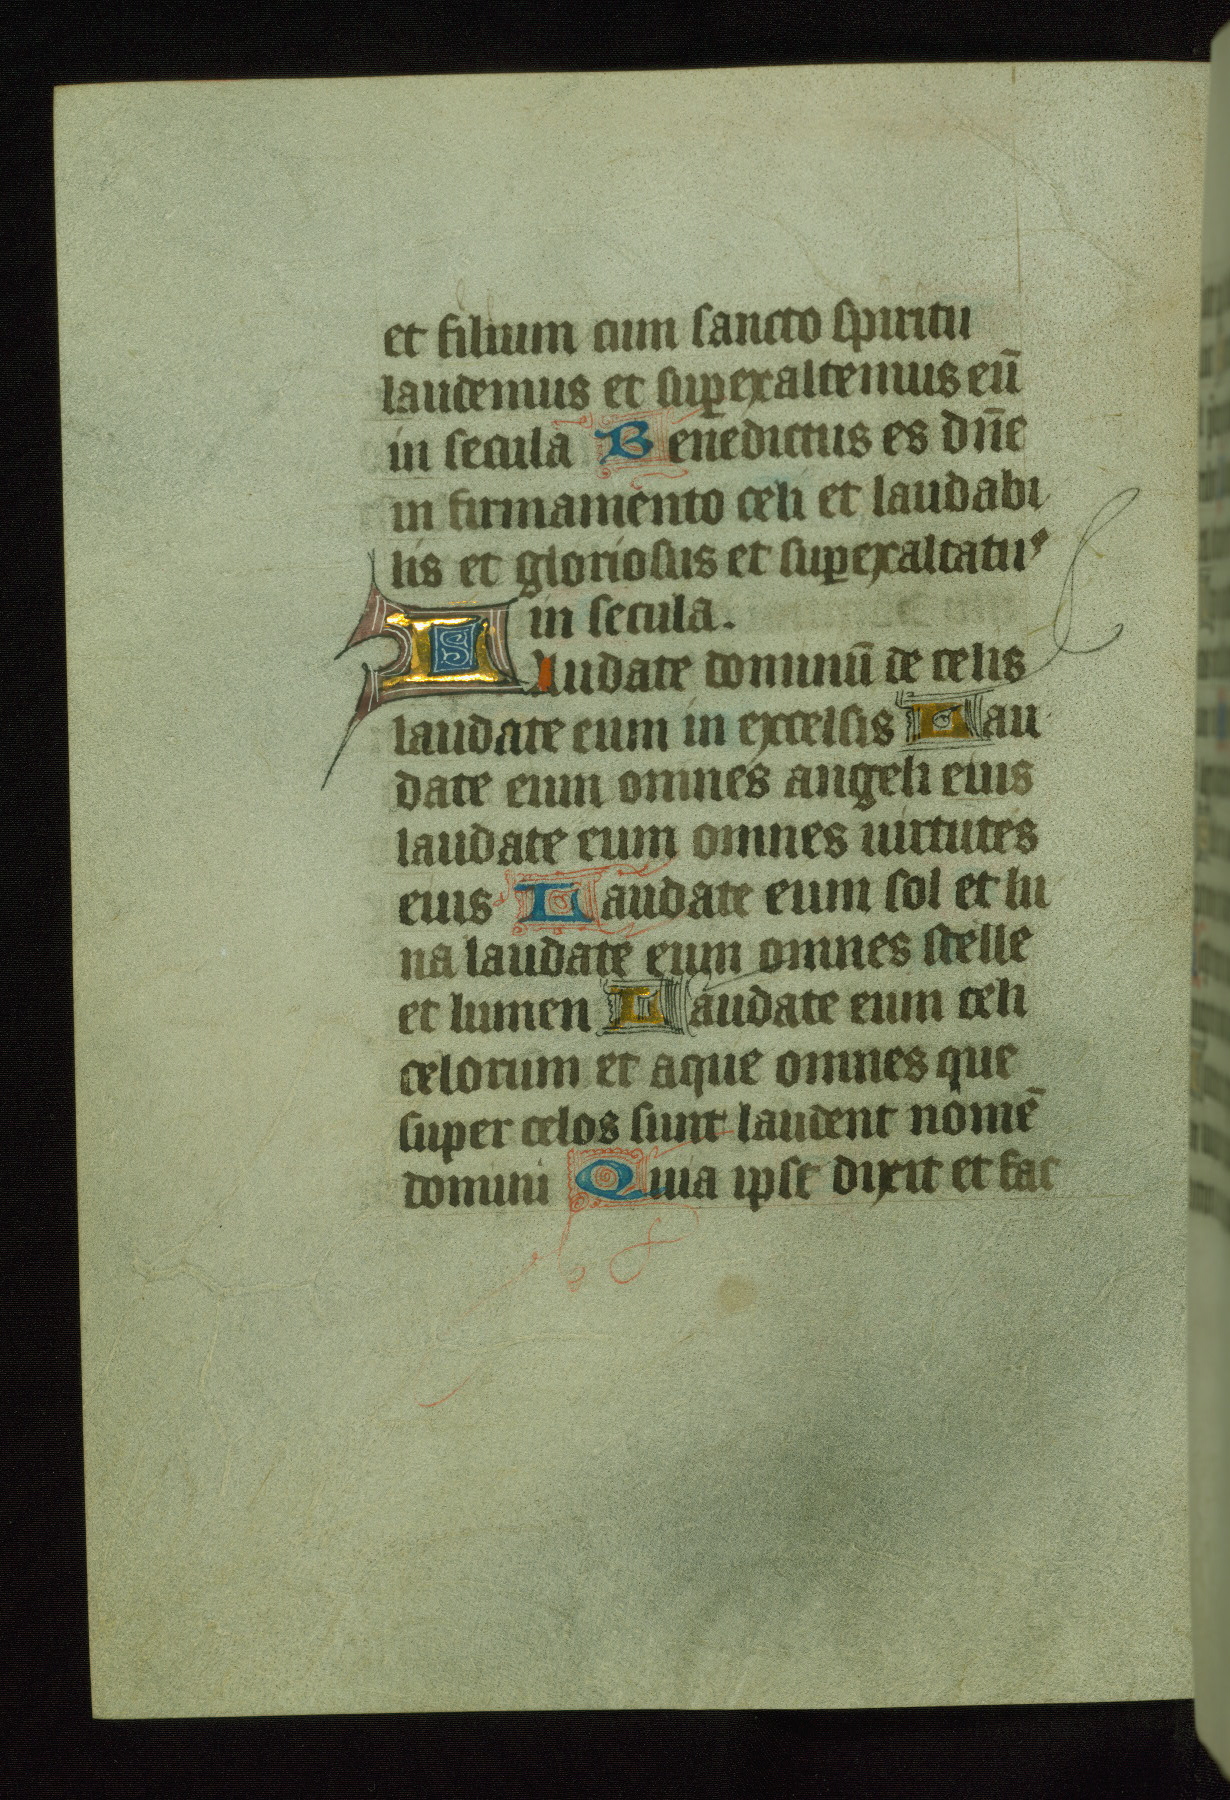 et filium cum sancto spiritu
laudemus et superexaltemus eū
in secula Benedictus es dn̄e
in firmamento celi et laudabi
lis et gloriosus et superexaltatus
in secula.
Laudate dominū de celis
laudate eum in excelsis Lau
date eum omnes angeli eius
laudate eum omnes uirtutes
eius Laudate eum sol et lu
na laudate eum omnes stelle
et lumen Laudate eum celi
celorum et aque omnes que
super celos sunt laudent nomē
domini Quia ipse dixit et fac